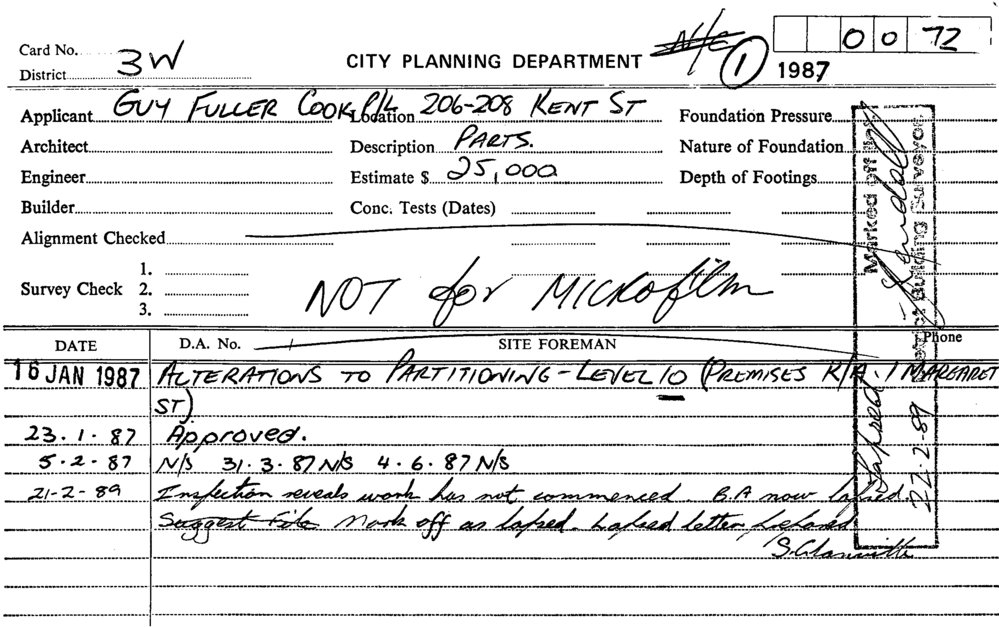 Card No.
District 3W
CITY PLANNING DEPARTMENT
N/C
1
0 0 72
1987
Applicant GUY FULLER COOK P/L Location 206-208 KENT ST Foundation Pressure
Architect Description PARTS. Nature of Foundation
Engineer Estimate $ 25,000 Depth of Footings
Builder Conc. Tests (Dates)
Alignment Checked
Survey Check 1.
2.
3.
NOT for MICROfilm
Marked off
Building Surveyor.
Lapsed
27-2-89
DATE D.A. No. SITE FOREMAN Phone
16 JAN 1987 ALTERATIONS TO PARTITIONING - LEVEL 10 (PREMISES K/A. 1 MARGARET
ST)
23.1.87 Approved.
5-2-87 N/S 31.3.87 N/S 4.6.87 N/S
21-2-89 Inspection reveals work has not commenced. B.A now lapsed.
Suggest File Mark off as lapsed. Lapsed letter prepared
S.Glanville